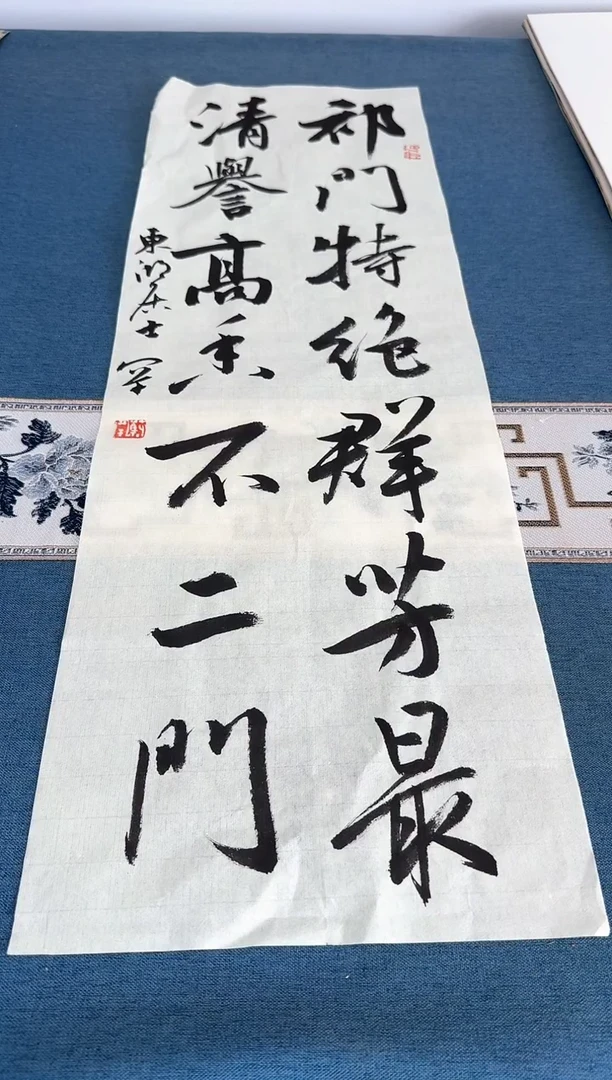 祁門特绝群芳最
清譽高香不二門
東湖居士